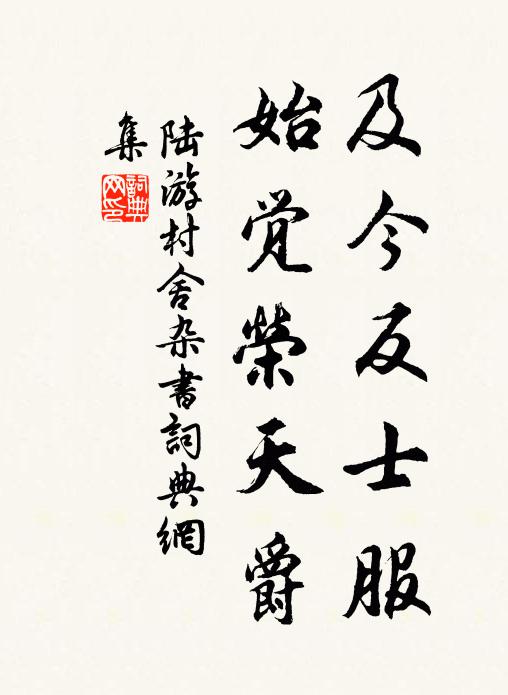 及今反士服
始觉荣天爵
陆游村舍杂书詞典網
集
詞典网印